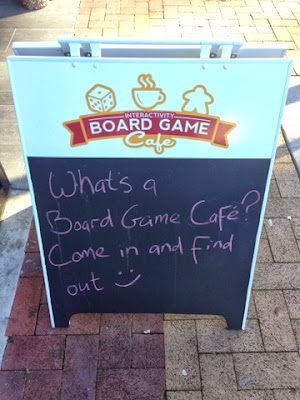 INTERACTIVITY
BOARD GAME
Cafe
What's a
Board Game Café?
Come in and find
out :)